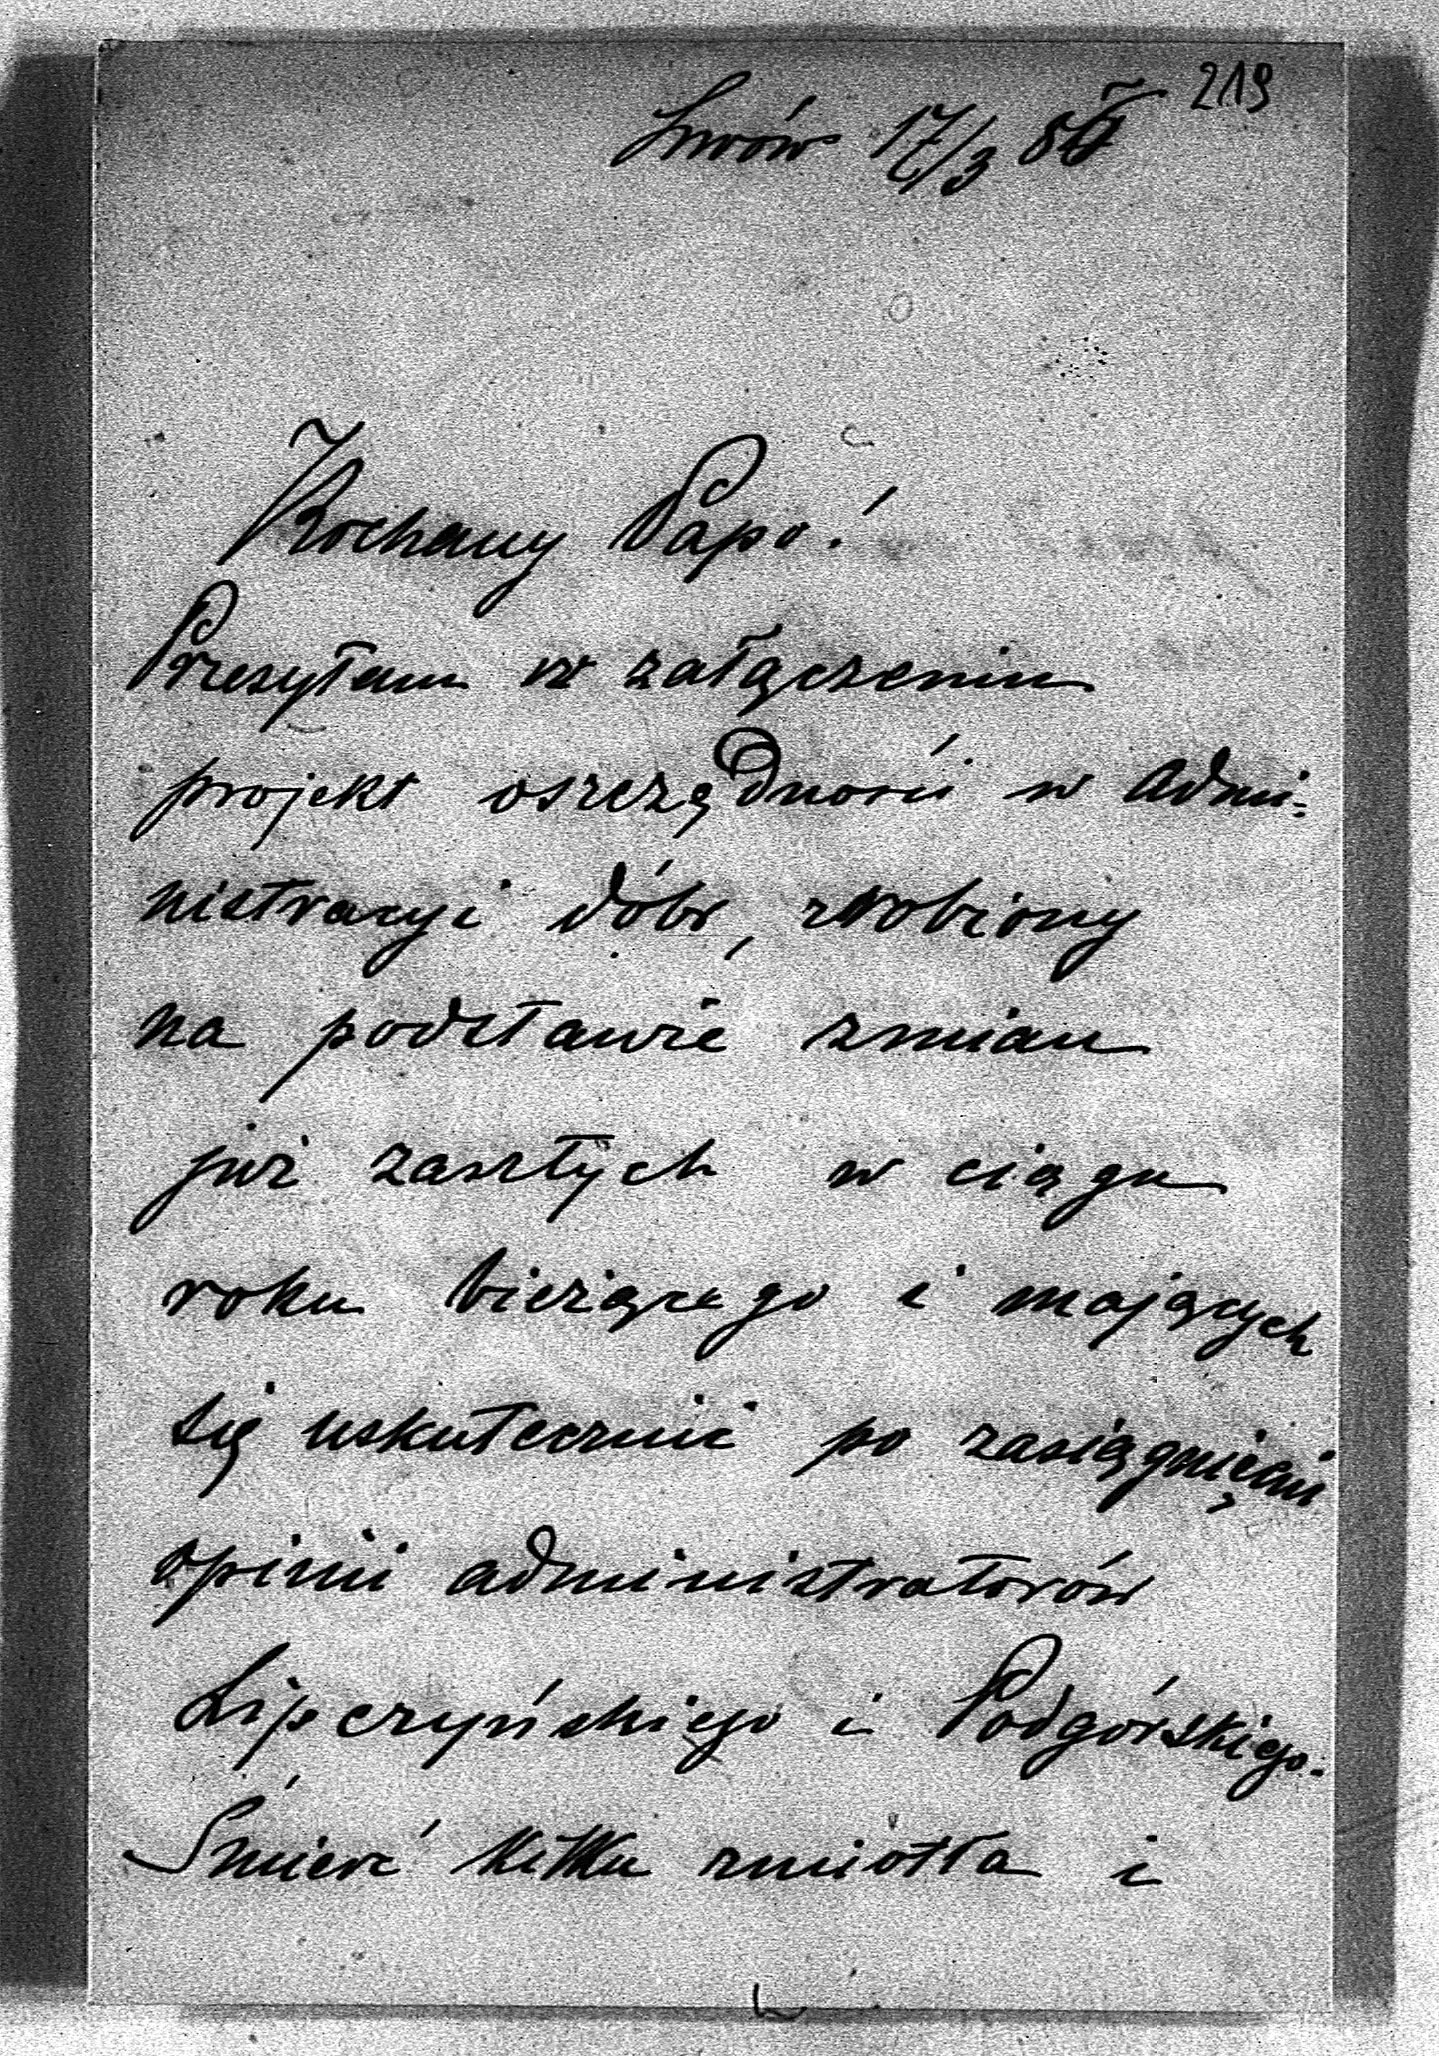 219
Lwów 17/3 85
Kochany Papo!
Przesyłam w załączeniu
projekt oszczędności w admi=
nistracyi dóbr, zrobiony
na podstawie zmian
już zaszłych w ciągu
roku bieżącego i mających
się uskutecznić po zasiągnięciu
opinii administratorów
Lipczyńskiego i Podgórskiego.
Śmierć kilku zmiotła i